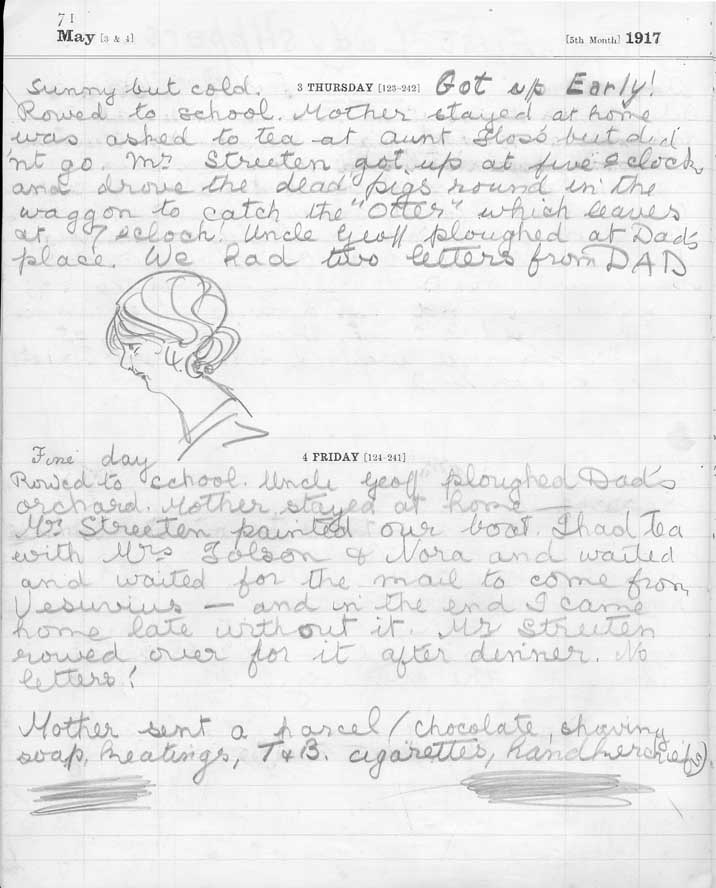 71
May [3 & 4] [5th Month] 1917
Sunny but cold. 3 THURSDAY [123-242] Got up Early!
Rowed to school. Mother stayed at home
was asked to tea at Aunt Floss' but did
'nt go. Mr Streeten got up at five o'clock,
and drove the dead pigs round in the
waggon to catch the "Otter" which leaves
at 7 o'clock! Uncle Geoff ploughed at Dad's
place. We had two letters from DAD
Fine day 4 FRIDAY [124-241]
Rowed to school. Uncle Geoff ploughed Dad's
orchard. Mother stayed at home —
Mr Streeten painted our boat. I had tea
with Mrs Tolson & Nora and waited
and waited for the mail to come from
Vesuvius — and in the end I came
home late without it. Mr Streeten
rowed over for it after dinner. No
letters!
Mother sent a parcel (chocolate, shaving
soap, Keatings, T & B. cigarettes, handkerchiefs).